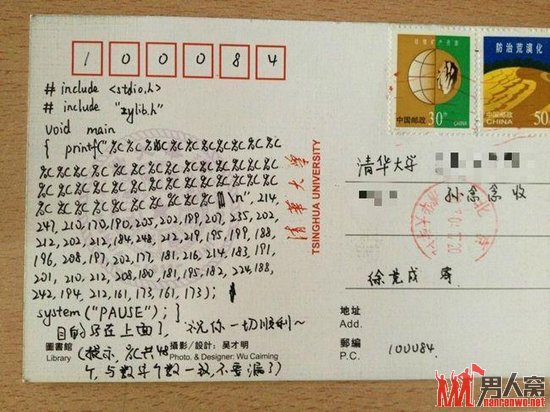 100084
# include <stdio.h>
# include "zylib.h"
void main
{ printf("%c %c %c %c %c %c %c
%c %c %c %c %c %c %c %c %c %c %c
%c %c %c %c %c %c %c %c %c %c %c
%c %c %c %c %c %c %c %c %c %c %c
%c %c %c %c %c %c %c %c\n", 214,
247, 210, 170, 190, 205, 202, 199, 207, 235, 202,
212, 202, 212, 184, 248, 212, 219, 195, 199, 188,
196, 208, 197, 202, 177, 181, 216, 214, 183, 191,
201, 210, 212, 208, 180, 181, 195, 182, 224, 188,
242, 194, 212, 161, 173, 161, 173);
system ("PAUSE"); }
目的写在上面了, 祝你一切顺利~
圖書館
Library
攝影/設計: 吴才明
Photo. & Designer: Wu Caiming
(提示, %c共48
个, 与数字个数一致, 不要漏了)
清華大學
TSINGHUA UNIVERSITY
中国邮政
CHINA
30分
防治荒漠化
中国邮政
CHINA
50
清华大学
孙念念 收
寄
地址
Add.
郵編
P.C.
100084
男人窝
nanrenwo.net